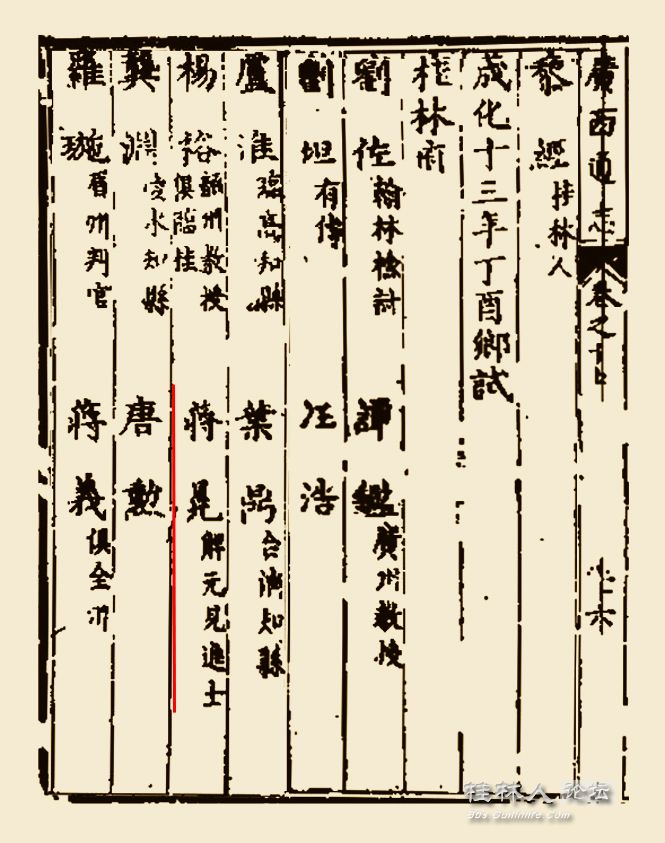 廣西通志 卷之十 六
黎經 桂林人
成化十三年丁酉鄉試
桂林府
劉佐 翰林檢討 譚鑑 廣州教授
劉坦 有傳 汪浩
盧淮 臨高知縣 葉 合浦知縣
楊裕 韶州教授 俱臨桂 蔣冕 解元見進士
龔淵 陵水知縣 唐勲
羅璇 眉州判官 蔣義 俱全州
桂林人论坛
bbs.Guilinlife.com